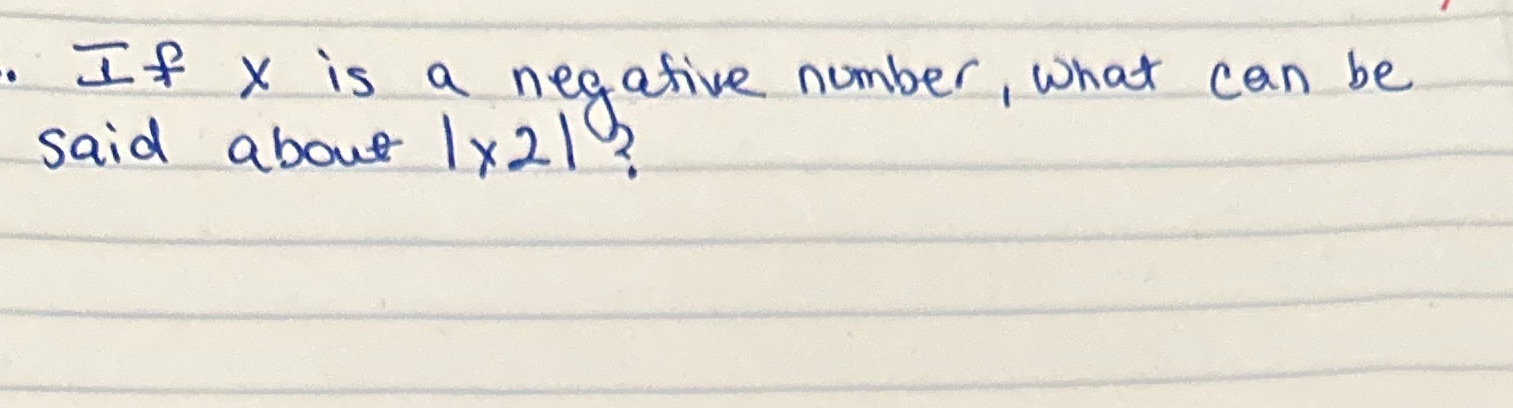 . If x is a negative number, what can be
said about |x2|?